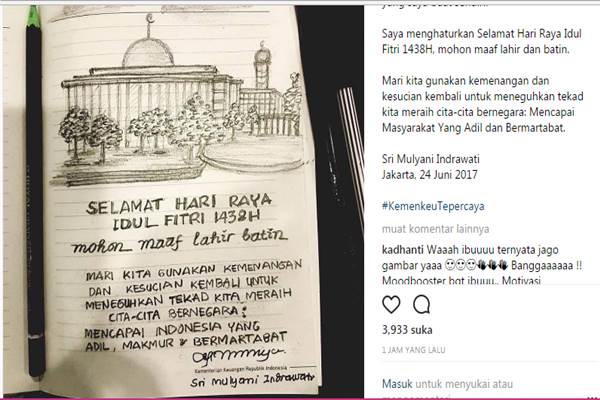 SELAMAT HARI RAYA
IDUL FITRI 1438H
mohon maaf lahir batin
MARI KITA GUNAKAN KEMENANGAN
DAN KESUCIAN KEMBALI UNTUK
MENEGUHKAN TEKAD KITA MERAIH
CITA-CITA BERNEGARA:
MENCAPAI INDONESIA YANG
ADIL, MAKMUR & BERMARTABAT
Kementerian Keuangan Republik Indonesia
Sri Mulyani Indrawati
Saya menghaturkan Selamat Hari Raya Idul
Fitri 1438H, mohon maaf lahir dan batin.
Mari kita gunakan kemenangan dan
kesucian kembali untuk meneguhkan tekad
kita meraih cita-cita bernegara: Mencapai
Masyarakat Yang Adil dan Bermartabat.
Sri Mulyani Indrawati
Jakarta, 24 Juni 2017
#KemenkeuTepercaya
muat komentar lainnya
kadhanti Waaah ibuuuu ternyata jago
gambar yaaa Banggaaaaaa !!
Moodbooster bgt ibuuu.. Motivasi
3,933 suka
1 JAM YANG LALU
Masuk untuk menyukai atau